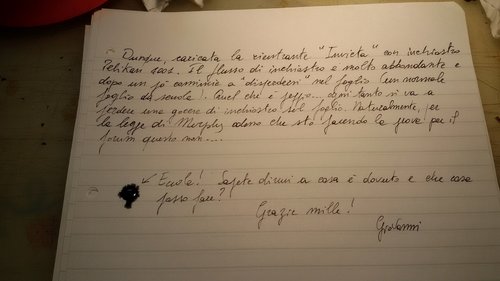 Dunque, caricata la rientrante "Invicta" con inchiostro
Pelikan 4001. Il flusso di inchiostro è molto abbondante e
dopo un pò comincia a "disperdersi" nel foglio (un normale
foglio da scuola). Quel ch'è peggio... ogni tanto si va a
perdere una goccia di inchiostro sul foglio. Naturalmente, per
la legge di Murphy adesso che sto facendo la prova per il
forum questo non....
Eccola! Sapete dirmi a cosa è dovuto e che cosa
posso fare?
Grazie mille!
Giovanni